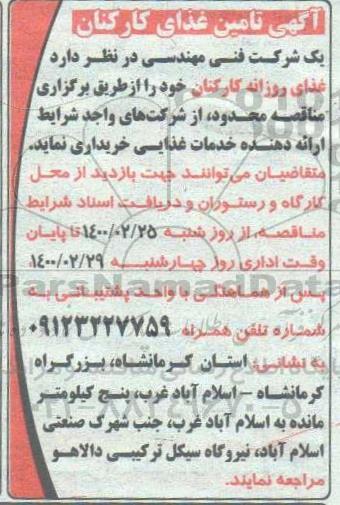 آگهی تامین غذای کارکنان
یک شرکت فنی مهندسی در نظر دارد
غذای روزانه کارکنان خود را ازطریق برگزاری
مناقصه محدود، از شرکت‌های واجد شرایط
ارائه دهنده خدمات غذایی خریداری نماید.
متقاضیان می‌توانند جهت بازدید از محل
کارگاه و رستوران و دریافت اسناد شرایط
مناقصه، از روز شنبه ۱۴۰۰/۰۲/۲۵ تا پایان
وقت اداری روز چهارشنبه ۱۴۰۰/۰۲/۲۹
پس از هماهنگی با واحد پشتیبانی به
شماره تلفن همراه ۰۹۱۲۳۲۲۷۷۵۹
به نشانی: استان کرمانشاه، بزرگراه
کرمانشاه - اسلام آباد غرب، پنج کیلومتر
مانده به اسلام آباد غرب، جنب شهرک صنعتی
اسلام آباد، نیروگاه سیکل ترکیبی دالاهو
مراجعه نمایند.
ParsNamadData